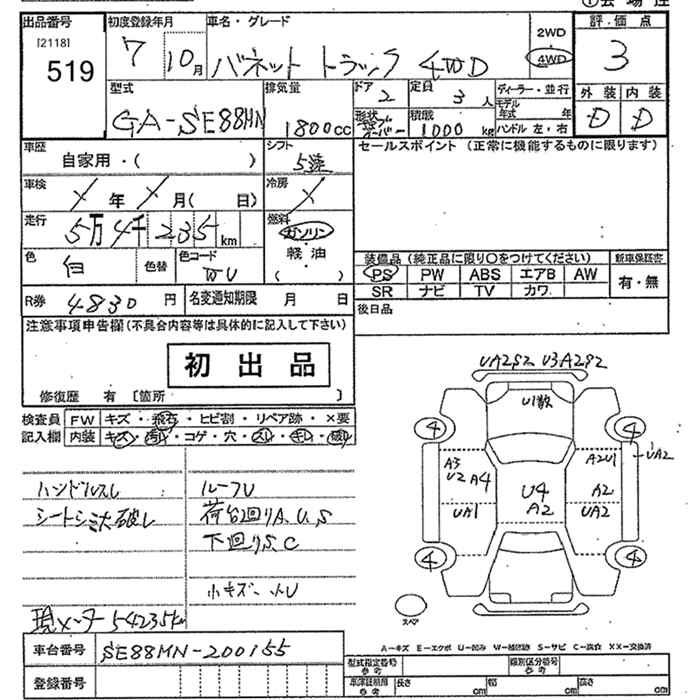 ①会場注
出品番号 初度登録年月 車名・グレード 2WD 評価点
[2118] 7 10月 バネット トラック 4WD 4WD 3
519
型式 排気量 ドア 定員 ディーラー・並行 外装 内装
GA-SE88MN 1800cc 2 3人 モデル年式 年 D D
形状 積載 1000kg ハンドル 左・右
車歴 シフト セールスポイント (正常に機能するものに限ります)
自家用・( ) 5速
車検 冷房
X年X月( 日) X
走行 燃料
5万4千235km ガソリン
色 色替 色コード 軽油 装備品 (純正品に限り○をつけてください) 新車保証書
白 WU ( ) PS PW ABS エアB AW 有・無
SR ナビ TV カワ
R券 4830円 名変通知期限 月 日 後日品
注意事項申告欄(不具合内容等は具体的に記入して下さい)
初出品
修復歴 有 [箇所 ]
UA2S2 U3A2S2
U1散
検査員 FW キズ・飛石・ヒビ割・リペア跡・×要
記入欄 内装 キズ・汚れ・コゲ・穴・スレ・キレ・破れ
4 4
UA2
A3 U2 A4 A2U1
U4 A2
A2
UA1 UA2
4 4
ハンドルスレ ルーフU
シートシミ大破レ 荷台回りA、U、S
下回りS、C
小キズ・小U
現メーター54235km
スペア
A-キズ E-エクボ U-凹み W-補修跡 S-サビ C-腐食 XX-交換済
車台番号 SE88MN-200155
型式指定番号 参考 類別区分番号 参考
登録番号 車庫証明用 参考 長さ cm 幅 cm 高さ cm